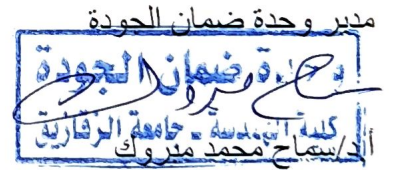 مدير وحدة ضمان الجودة
وحدة ضمان الجودة
كلية الهندسة - جامعة الزقازيق
أ.د/سماح محمد مبروك